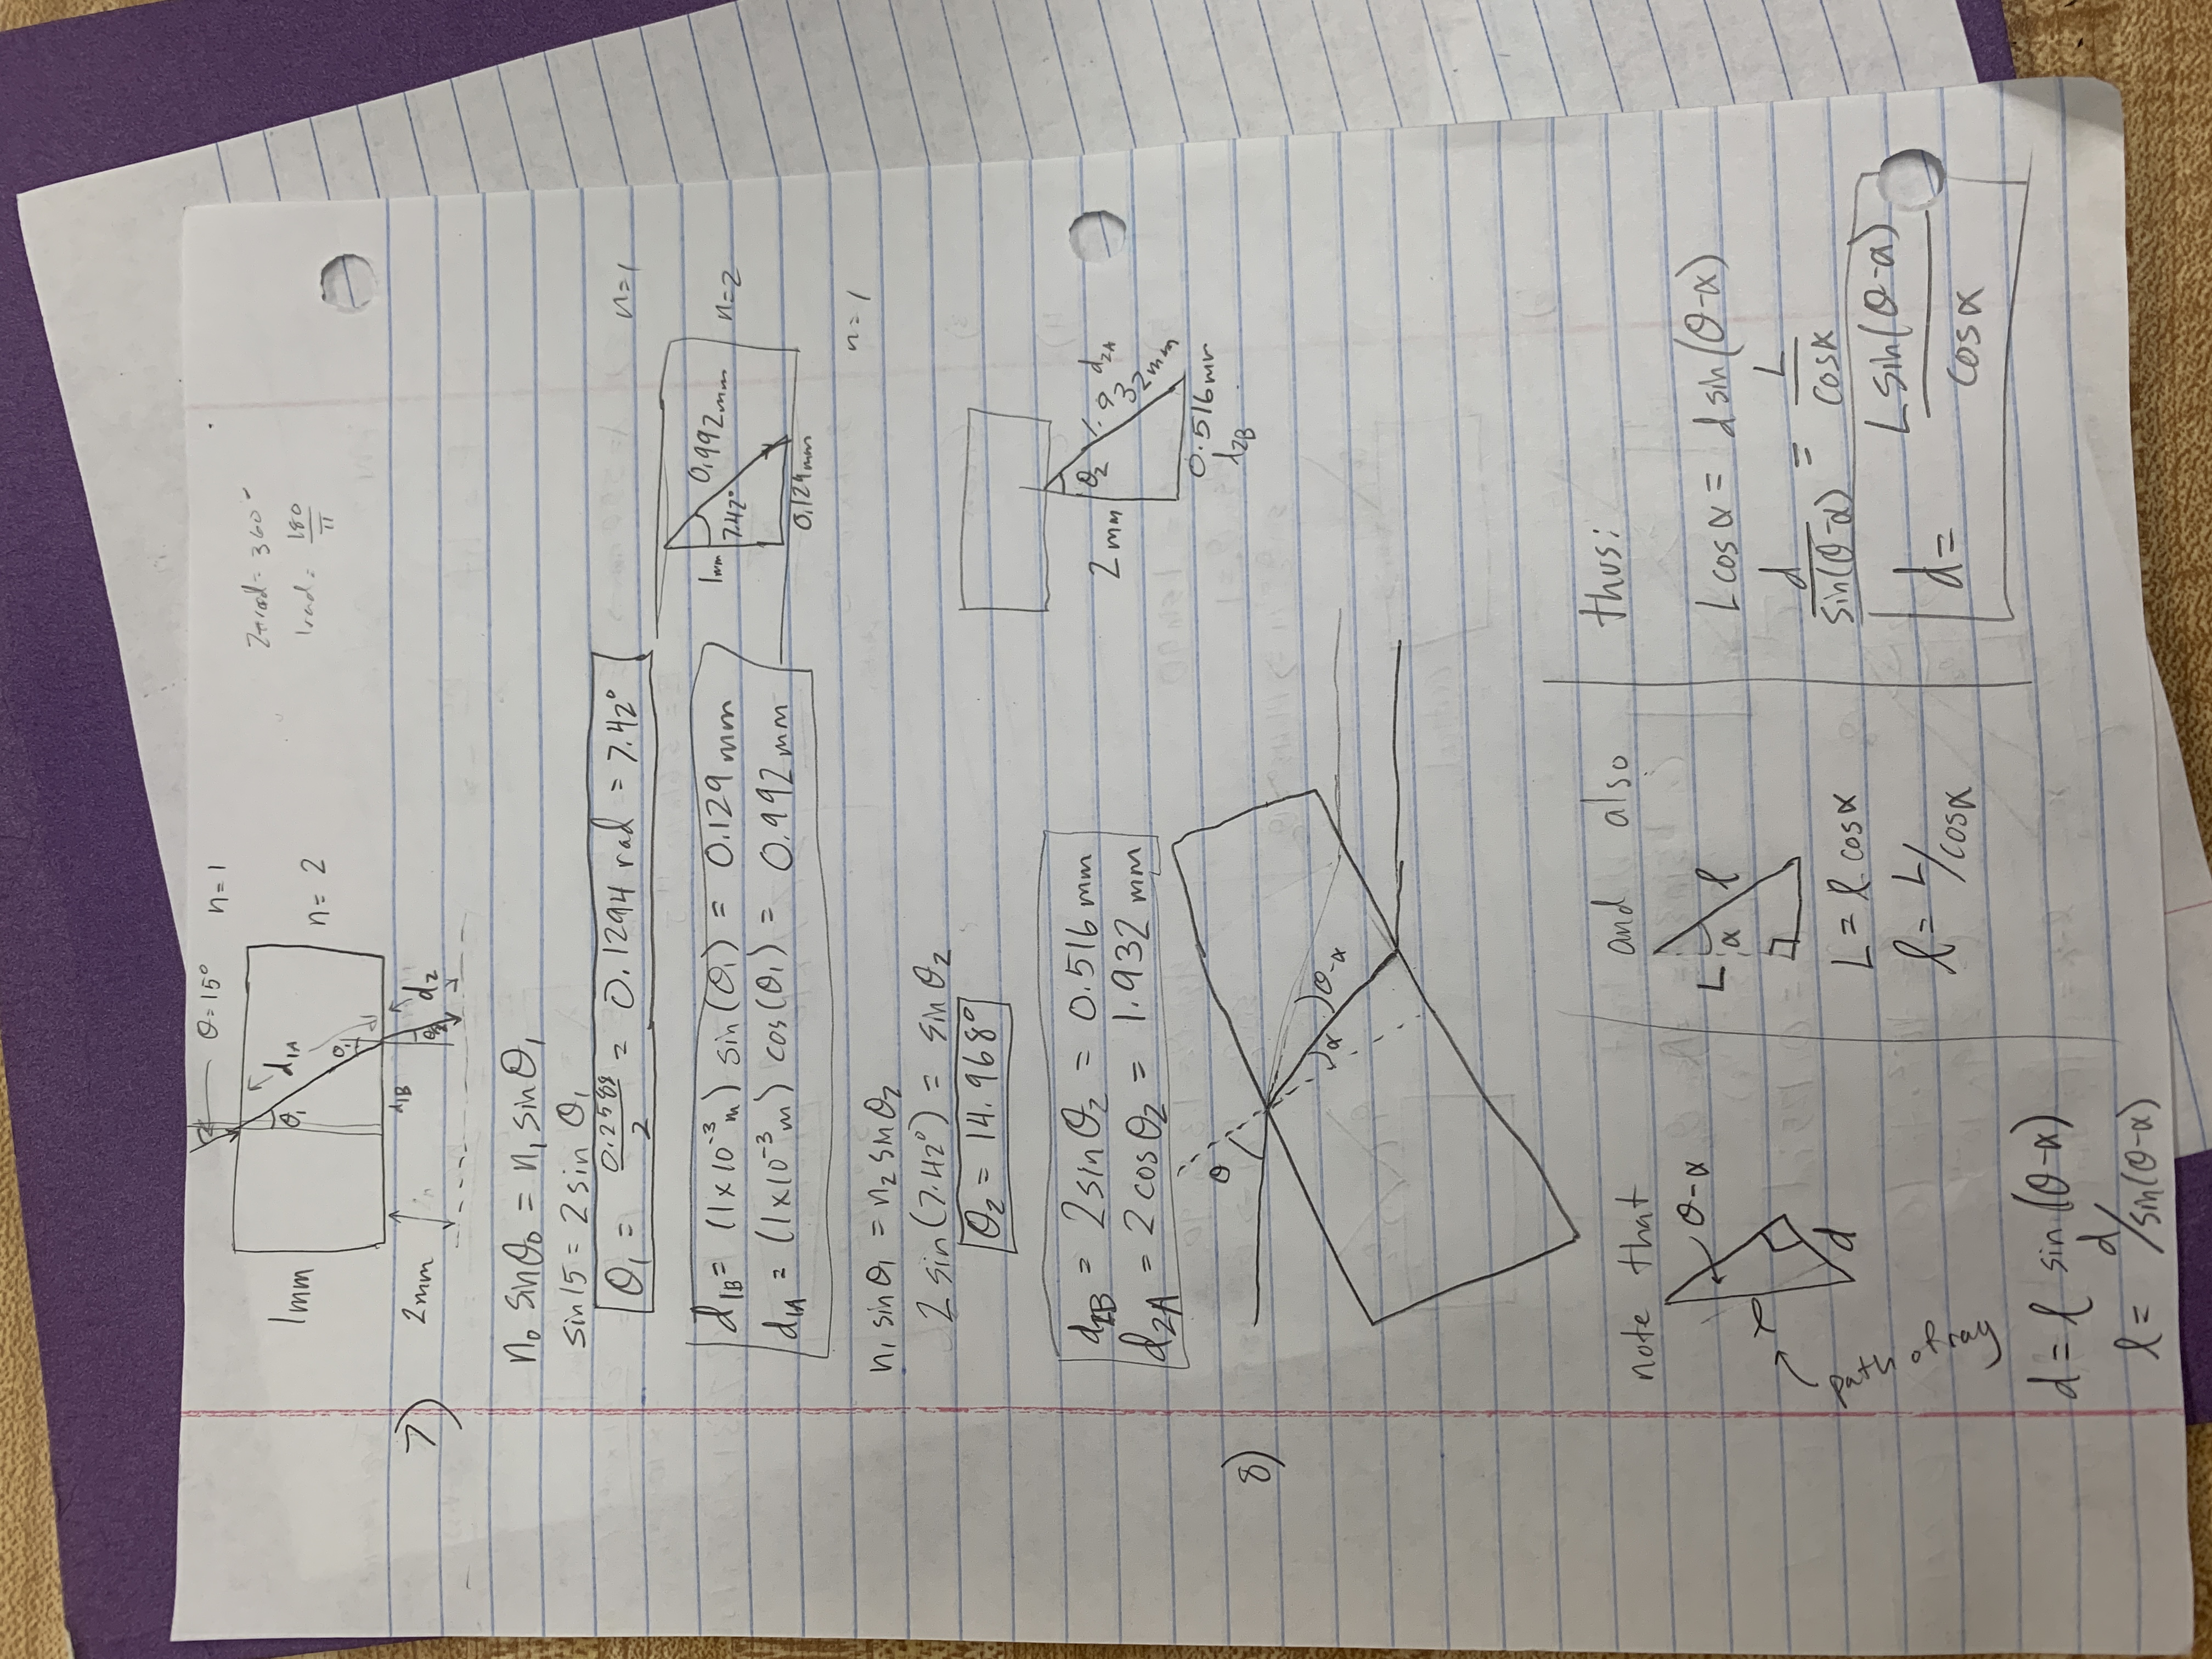 θ=15° n=1
2π rad = 360°
1 rad = 180/π
1mm
θ₁
d1A
n= 2
θ₁
7)
2mm
d1B
θ2
d2
n₀ sinθ₀ = n₁ sinθ₁
sin15 = 2 sin θ₁
θ₁ = 0.2588/2 = 0.1294 rad = 7.42°
n=1
d1B = (1x10⁻³m) sin(θ₁) = 0.129 mm
d1A = (1x10⁻³m) cos(θ₁) = 0.992 mm
1mm
7.42°
0.992mm
n=2
0.129mm
n=1
n₁ sinθ₁ = n₂ sinθ₂
2 sin(7.42°) = sin θ₂
θ₂ = 14.968°
d2B = 2sinθ₂ = 0.516 mm
d2A = 2cosθ₂ = 1.932 mm
2 mm
θ₂
d2A
1.932mm
0.516mm
d2B
8)
θ
α
θ-α
note that
θ-α
ℓ
d
path of ray
d = ℓ sin(θ-α)
ℓ = d/sin(θ-α)
and also
L
α
ℓ
L = ℓ cosα
ℓ = L/cosα
thus:
L cosα = d sin(θ-α)
d/sin(θ-α) = L/cosα
d = L sin(θ-α)/cosα